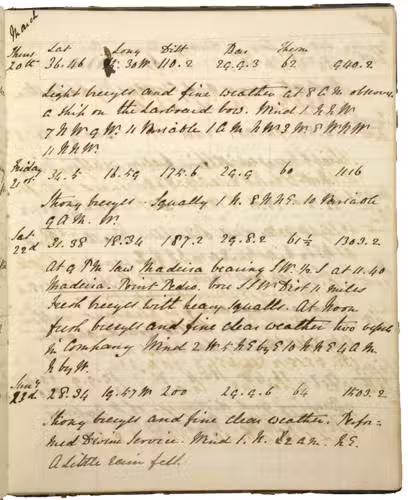 March
Thurs Lat Long Dist Bar Therm
20th 36.46 .30W 110.2 29.9.3 62 940.2
Light breezes and fine weather at 8 AM observed
a ship on the Larboard bow. Wind 1 N.N.W
7 N W 9 W. 11 Variable 1 AM N W 2 W 8 W N W
11 N N W.
Friday
21st 34.5 16.59 175.6 29.9 60 1116
Strong breezes. Squally 1 N. 8 N N E. 10 Variable
9 A M. W.
Sat
22d 31.58 18.34 187.2 29.8.2 61½ 1303.2
At 9 P M saw Madeira bearing S W ½ S at 11.40
Madeira. Point Pedro. bore S S W Dist 11 miles
Fresh breezes with heavy squalls. At Noon
fresh breezes and fine clear weather two vessels
in Company Wind 2 W 5 N E by E 10 N N E 4 A M
N by W.
Sun
23d 28.34 19.57W 200 29.9.6 64 1503.2
Strong breezes and fine clear weather. Perfor-
med Divine Service. Wind 1. N. 2 a m. N E.
A little rain fell.